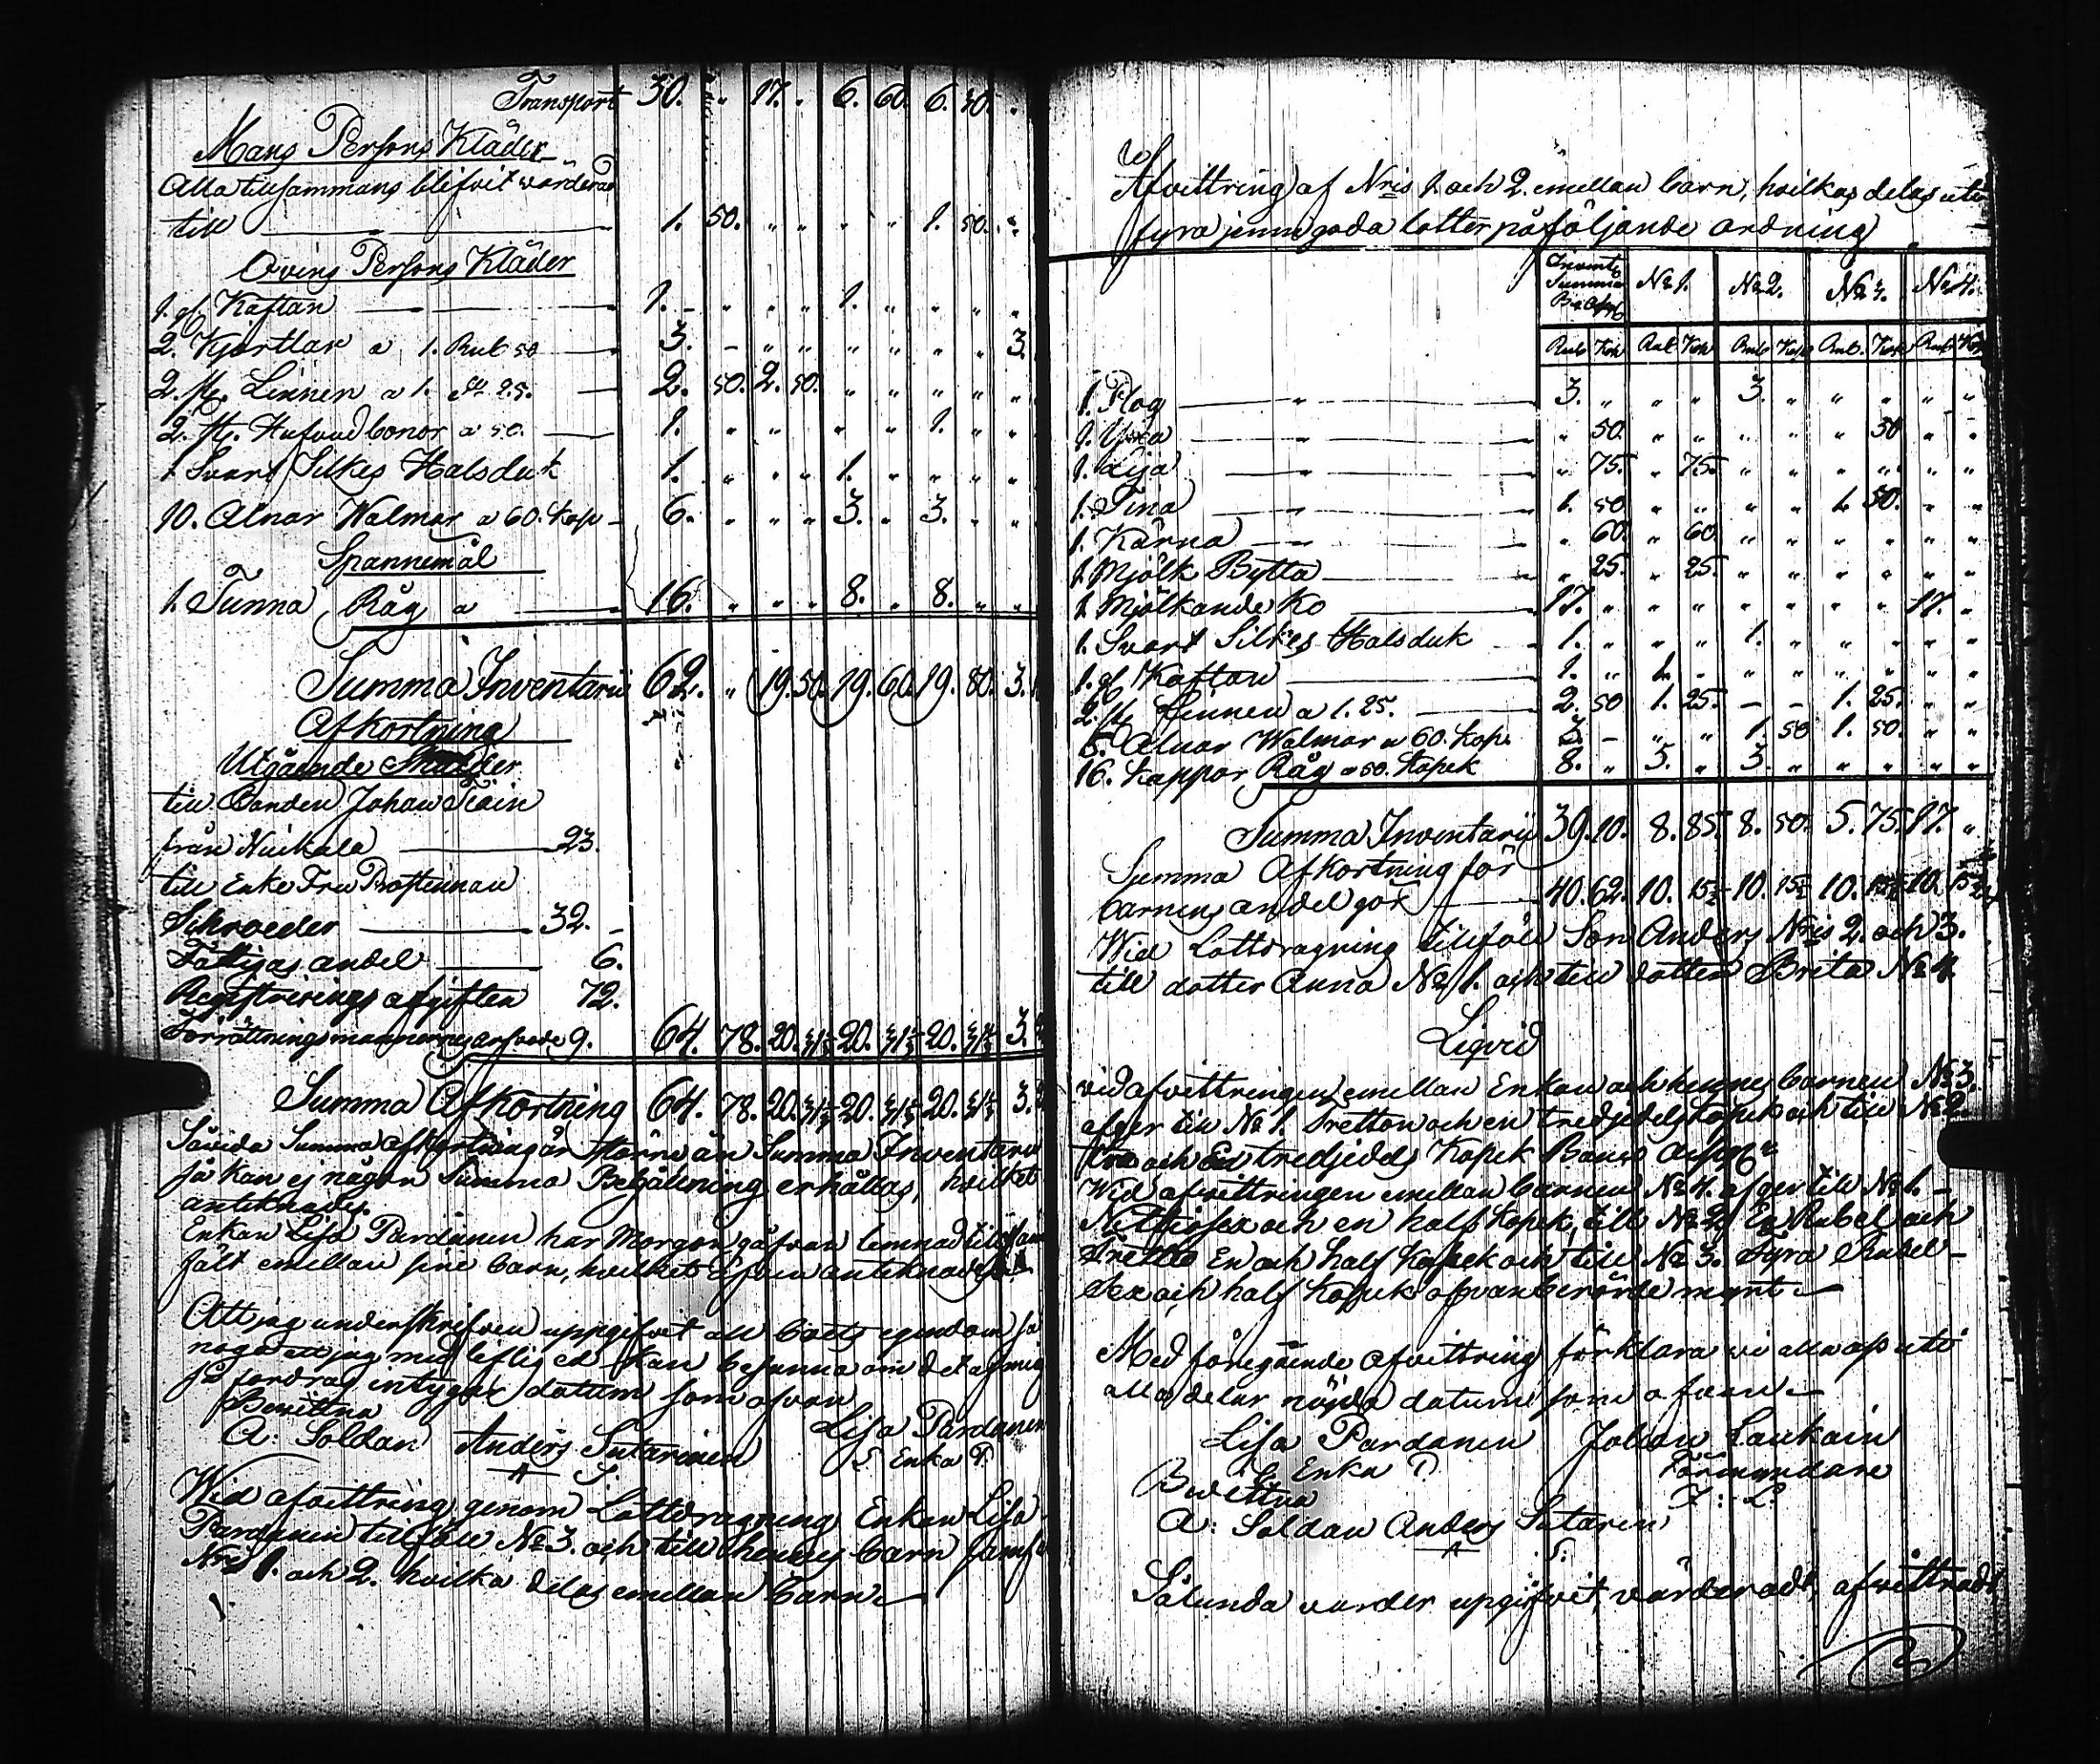 Transport 30. " 17. " 6. 60. 6. 30. "
Mans Persons Kläder
Alla tillsammans blifvit värderade
till 1. 50. " " " " 1. 50. "
Qvins Persons Kläder
1. gl. Kaftan 1. – " " 1. " " " "
2. Kjortlar a 1. Rub 50 3. – " " " " " " 3.
2. st. Linnen a 1. d:o 25. 2. 50. 2. 50. " " " " "
2. st. Hufvudbonor a 50. 1. " " " " " 1. " "
1 Svart Silkes Halsduk 1. " " " 1. " " " "
10. Alnar Walmar a 60. Kop 6. " " " 3. " 3. " "
Spannemål
1. Tunna Råg a 16. " " " 8. " 8. " "
Summa Inventarii 62. " 19. 50. 19. 60. 19. 80. 3.
Afkortning
Utgående Skulder
till Bonden Johan
från 23.
till Enke Fru
Schroeder 32. –
Fattigas andel 6.
Registrerings afgiften 72.
Förrättningsmännernes arfvode 9. 64. 78. 20. 20. 20. 3.
Summa Afkortning 64. 78. 20. 20. 20. 3.
Såvida Summa afkortning är större än Summa Inventarii
så kan ej någon Summa Behållning erhållas, hvilket
anteknades.
Enkan Lisa Pardanen har Morgongåfvan lemnad till
fält emellan sine barn, hvilket äfven anteknades
Att jag underskrifven uppgifvit all boets egendom så
noga att jag med liflig ed kan besanna om det af mig
så fordras, intygar datum som ofvan
Bevittna Lisa Pardanen
A: Soldan Anders Sutarinen Enka P.
A S.
Wid afvittring genom Lottdragning Enkan Lisa
Pardanen tillföll No 3. och till hennes barn
Nris 1. och 2. hvilka delas emellan barn
Afvittring af Nris 1. och 2. emellan barn, hvilkas delas uti
fyra jemngoda lotter på följande ordning
Summa No 1. No 2. No 3. No 4.
Rub Kop Rub Kop Rub Kop Rub. Kop Rub Kop
1. Plog 3. " " " 3. " " " " "
1. Yxa " 50. " " " " " 50 " "
1. Lija " 75. " 75. " " " " " "
1. Tina 1. 50. " " " " 1. 50. " "
1. Kärna " 60. " 60. " " " " " "
1. Mjölk Bytta " 25. " 25. " " " " " "
1. Mjölkande Ko 17. " " " " " " " 17. "
1. Svart Silkes Halsduk 1. " " " 1. " " " " "
1. gl Kaftan 1. " 1. " " " " " " "
2. st Linnen a 1. 25. 2. 50 1. 25. – – 1. 25. " "
5. Alnar Walmar a 60. Kop. 3. – " " 1. 50 1. 50. " "
16. Kappor Råg a 50. Kopek 8. " 5. " 3. " " " " "
Summa Inventarii 39. 10. 8. 85. 8. 50. 5. 75. 17. "
Summa Afkortning för
barnens andel gör 40. 62. 10. 15½ 10. 15½ 10. 15½ 10. 15½
Wid Lottdragning tillföll Son Anders Nris 2. och 3.
till dotter Anna No 1. och till dotter Brita No 4.
Liqvid
vid afvittringen emellan Enkan och hennes barnen No 3.
afger till No 1. Tretton och en tredjedels Kopek och till No 2.
Tre och En tredjedels Kopek Banco
Wid afvittringen emellan barnen No 4. afger till No 1. –
Nittiosex och en half Kopek, till No 2. En Rubel och
Trettio En och half Kopek och till No 3. Fyra Rubel –
sex och half Kopek ofvanberörde mynt –
Med föregående afvittring förklara vi alla oss uti
alla delar nöjda datum som ofvan –
Lisa Pardanen Johan Laukain
Enka P Förmyndare
Bevittna J: L.
A: Soldan Anders Sutarin
A S.
Sålunda vorder upgifvit, värderadt, afvittradt